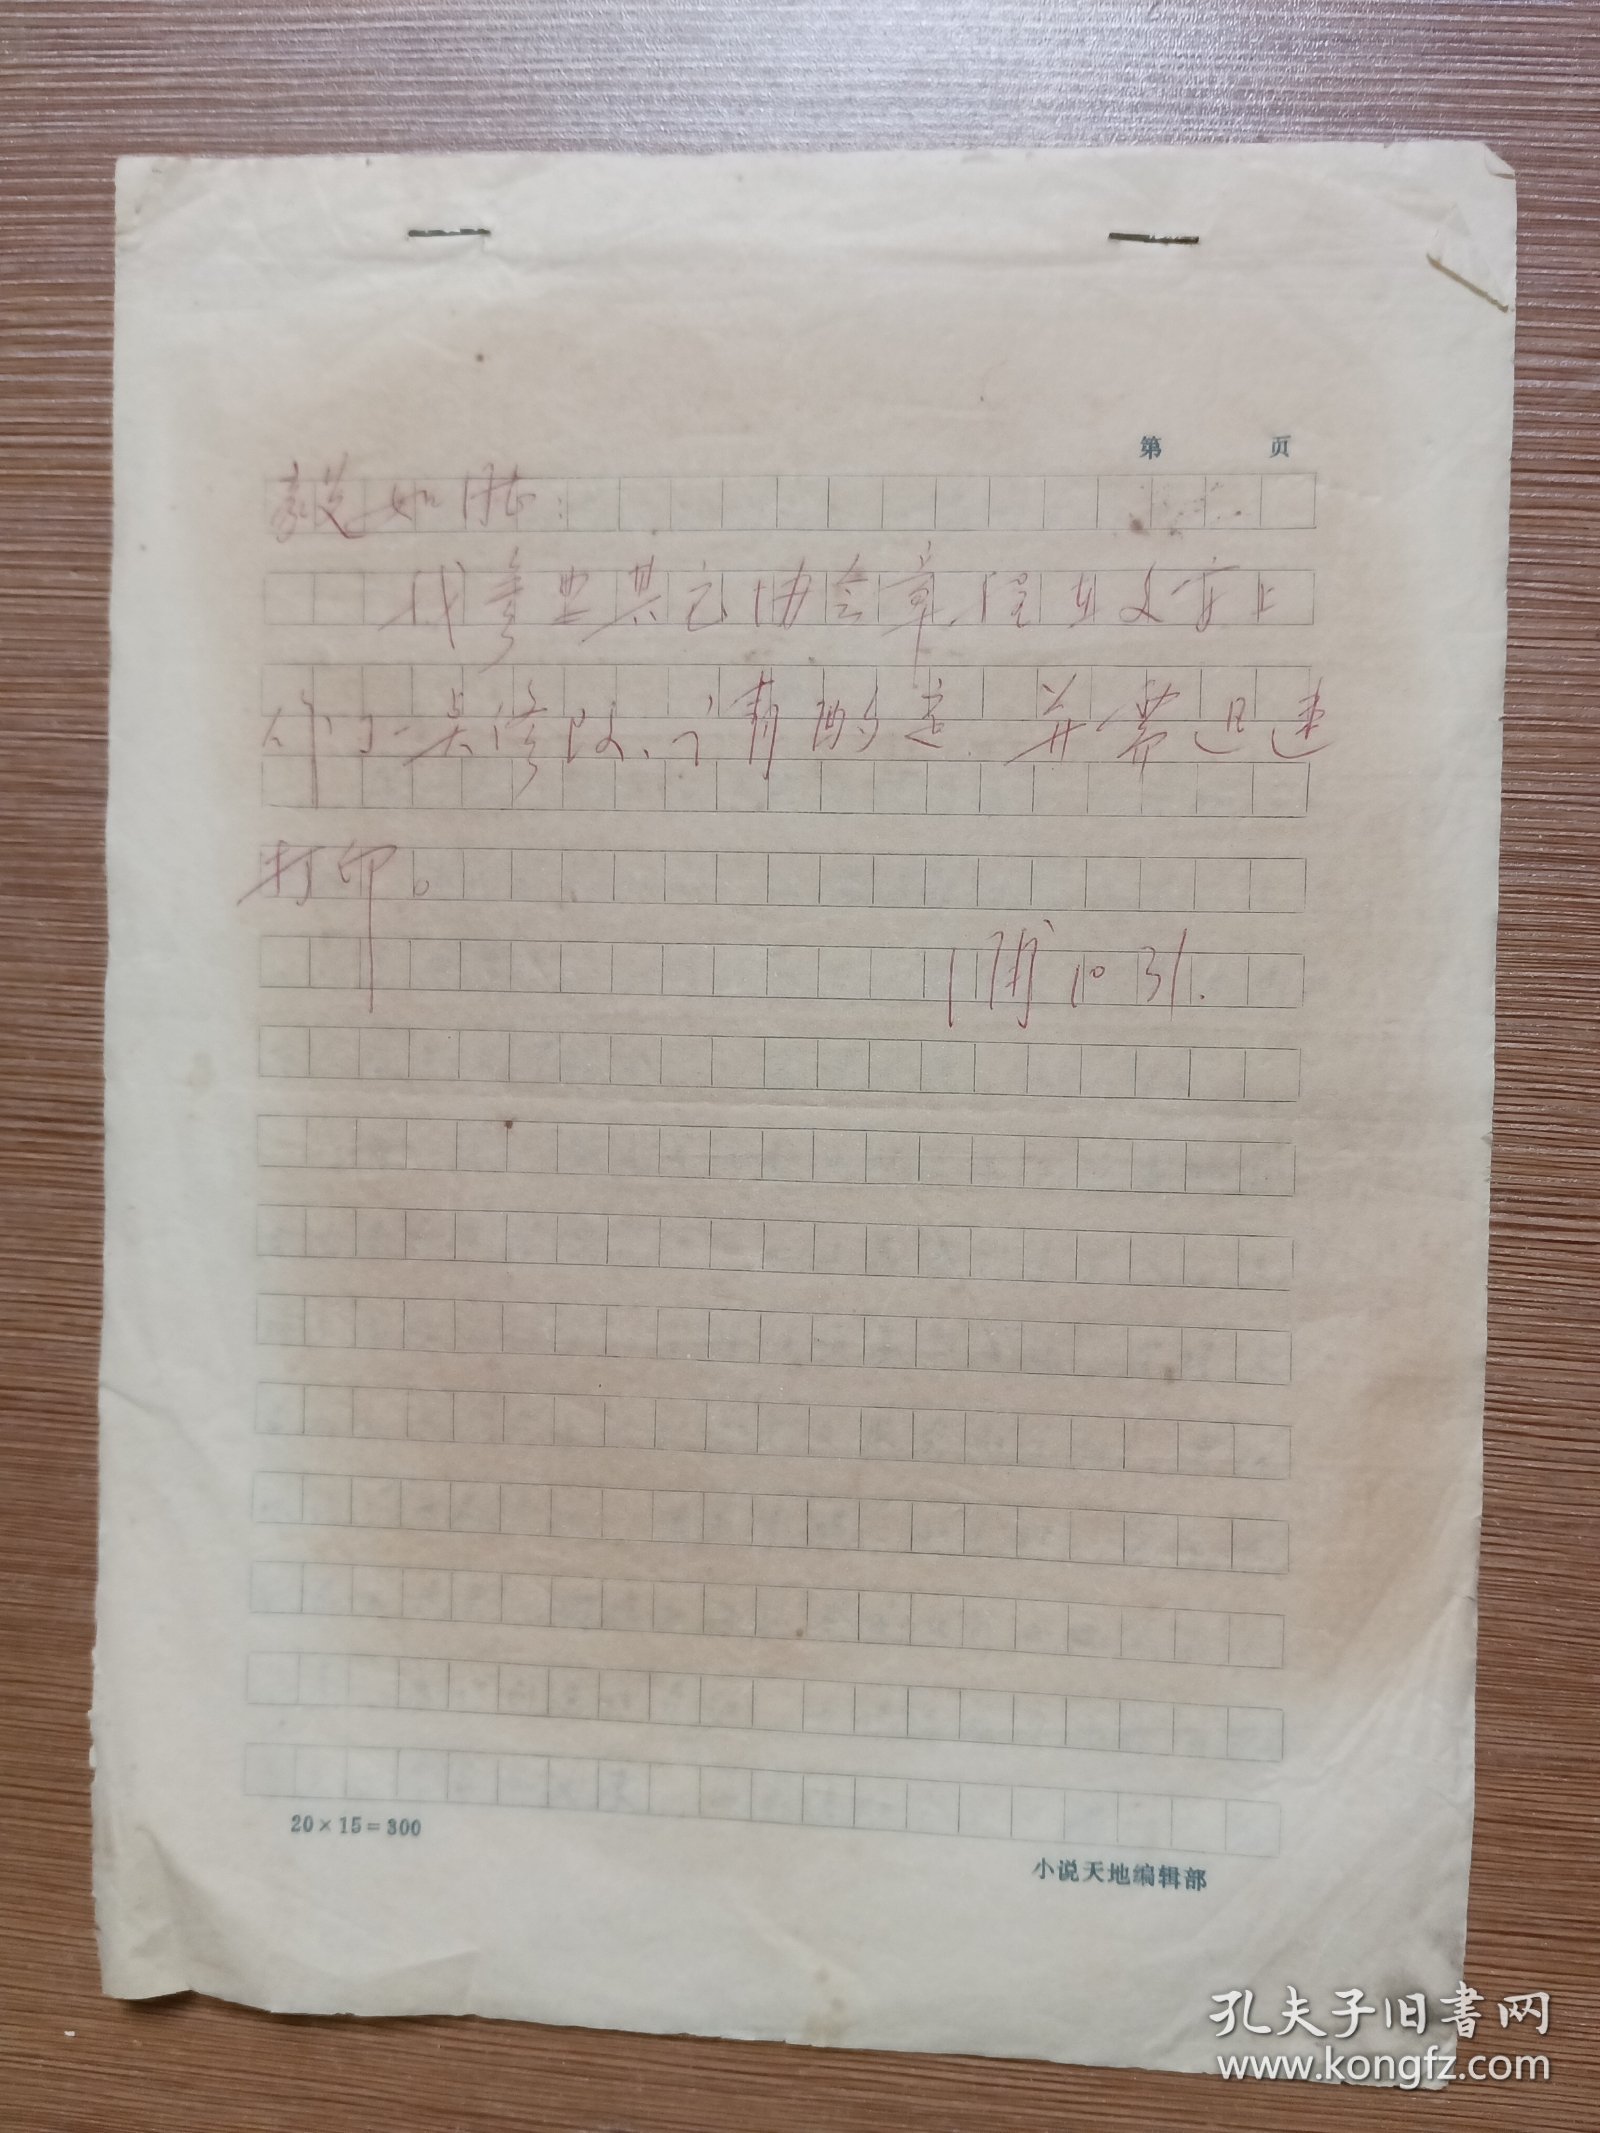 第 页
毅如同志：
我看照其它协会章程在文字上
作了一些修改，请酌定，并需迅速
打印。
10 31.
20×15=300
小说天地编辑部
孔夫子旧书网
www.kongfz.com